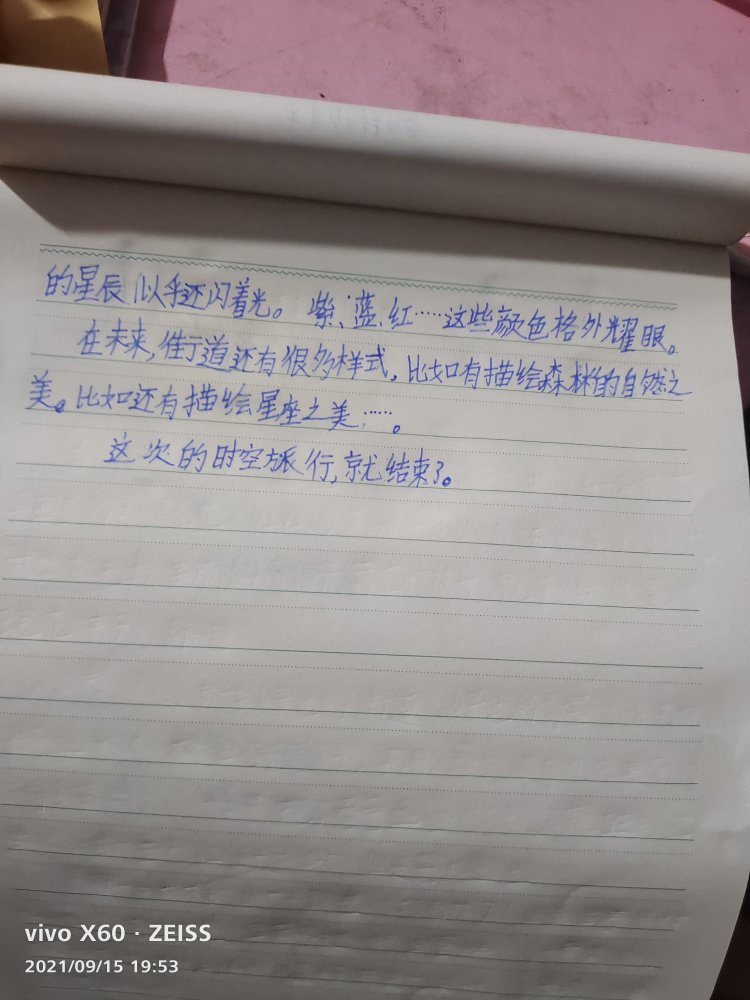 的星辰似乎还闪着光。紫、蓝、红……这些颜色格外耀眼。
在未来,街道还有很多样式,比如有描绘森林的自然之
美。比如还有描绘星座之美……。
这次的时空旅行,就结束了。
vivo X60 · ZEISS
2021/09/15 19:53